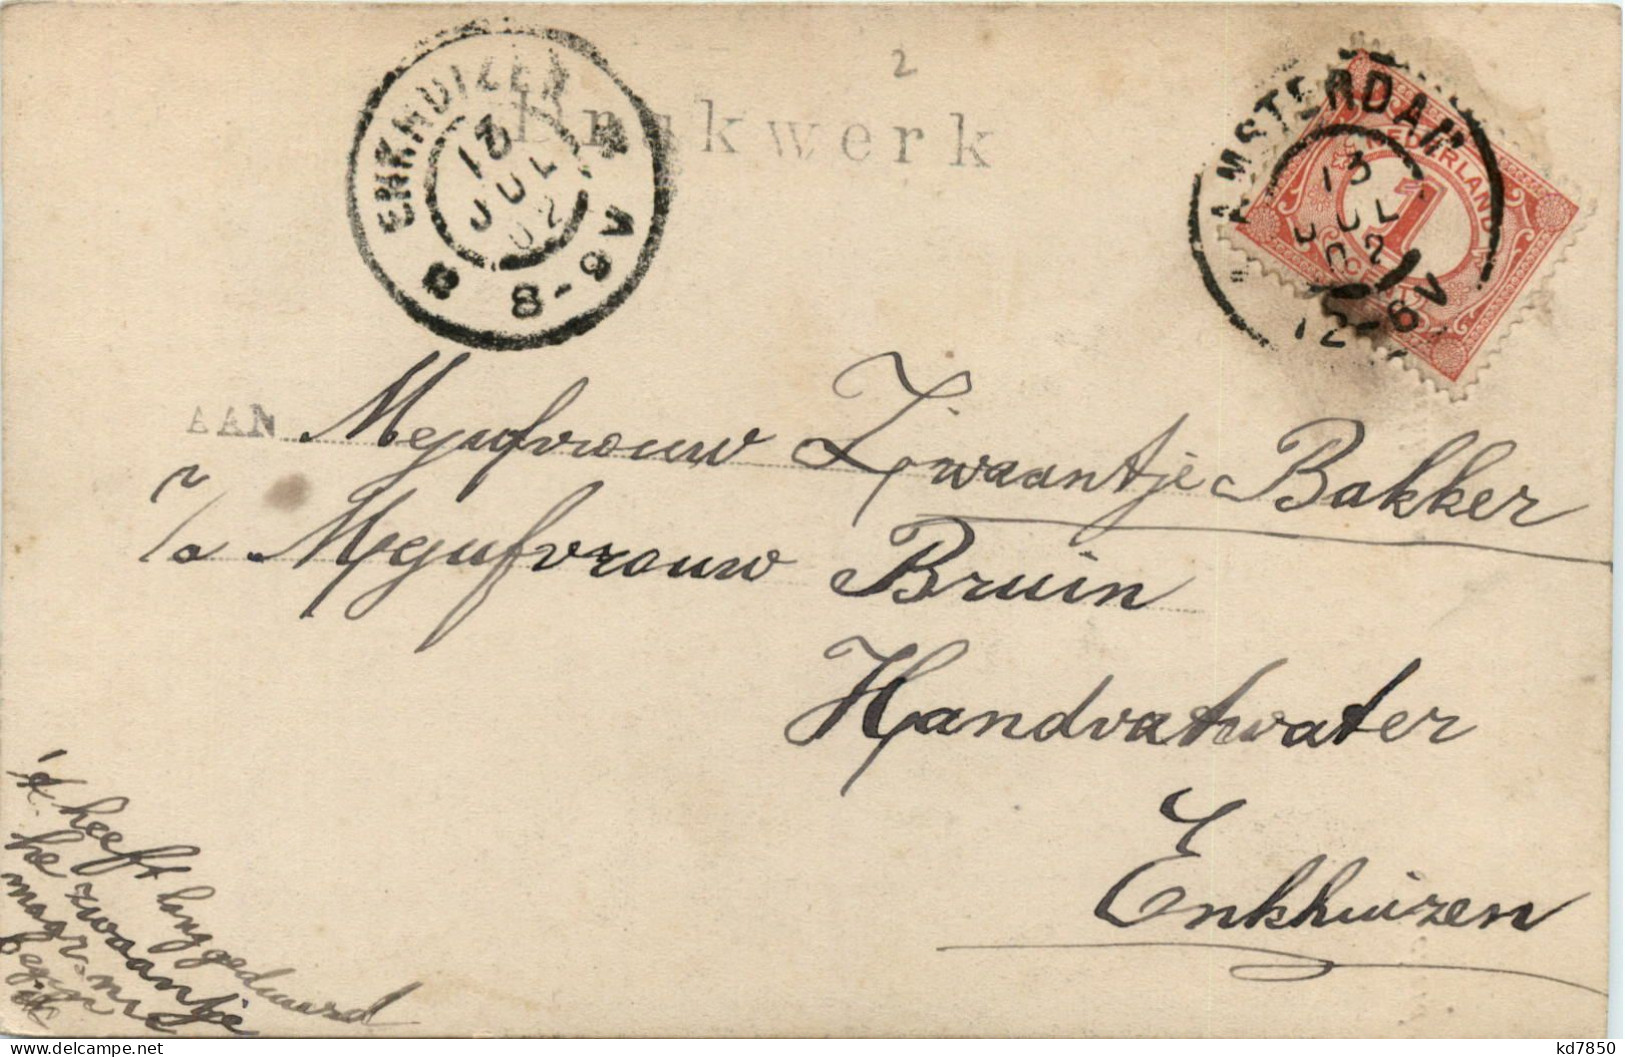 2
Drukwerk
ENKHUIZEN
13
JUL
02
8-8V
AMSTERDAM
13
JUL
02
12-8V
NEDERLAND
1
CENT
AAN Mejufvrouw Zwaantje Bakker
p/a Mejufvrouw Bruin
Handvatwater
Enkhuizen
't heeft lang geduurd
he zwaantje
maar nu
begin
ik
kd7850